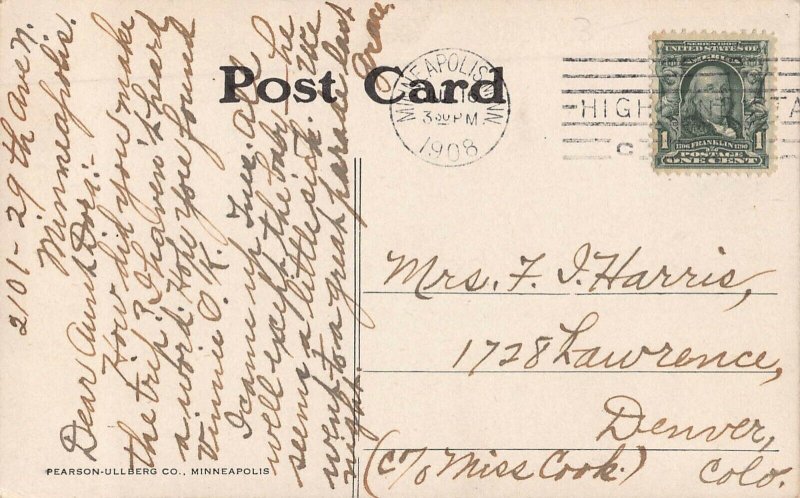 2101-29th Ave N.
Minneapolis.
Dear Aunt Dora:-
How did you make
the trip? I haven't heard
a word. Hope you found
Vinnie O.K.
I came up Tues. All
well except the baby, he
seems a little sick. We
went to a great parade last
night.
Grace.
Post Card
MINNEAPOLIS, MINN
3 30 PM
1908
HIGH
SERIES 1902
UNITED STATES OF
AMERICA
1 1706 FRANKLIN 1790 1
POSTAGE
ONE CENT
Mrs. F. I. Harris,
1728 Lawrence,
Denver,
(c/o Miss Cook.) Colo.
PEARSON-ULLBERG CO., MINNEAPOLIS